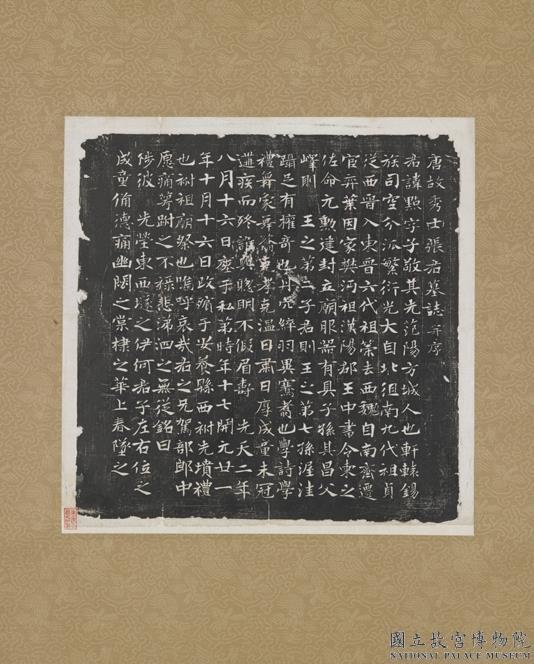 唐故秀士張君墓誌并序
君諱點字子敬其先范陽方城人也軒轅錫
族司空分派繁衍光大自北徂南九代祖貞
從西晉入東晉六代祖策去西魏自南齊遷
官弈葉因家樊沔祖漢陽郡王中書令柬之
佐命元勳建封立廟服器有具子孫其昌父
嶧則 王之第二子君則王之第七孫渥洼
躡足有權奇也丹穴綷羽異騫翥也學詩學
禮 孝克溫曰肅曰厚成童未冠
遘疾而終 聰明不假眉壽 先天二年
八月十六日歿于私第時年十七開元廿一
年十月十六日改殯于安養縣西祔先墳禮
也祔祖廟祭也嗚呼哀哉君之兄駕部郎中
愿痛萼跗之不祿悲涕泗之無從銘曰
陟彼 先塋東西墟之伊何君子左右位之
成童脩德痛幽閟之棠棣之華上春墜之
國立故宮博物院
NATIONAL PALACE MUSEUM